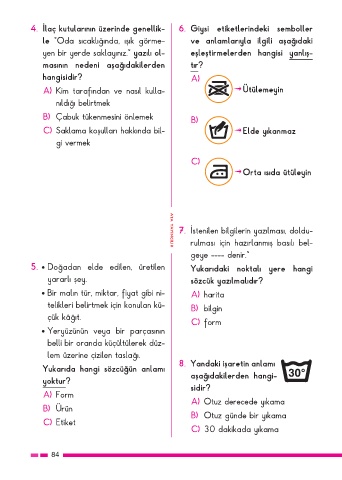 4. İlaç kutularının üzerinde genellik-
le "Oda sıcaklığında, ışık görme-
yen bir yerde saklayınız." yazılı ol-
masının nedeni aşağıdakilerden
hangisidir?
A) Kim tarafından ve nasıl kulla-
nıldığı belirtmek
B) Çabuk tükenmesini önlemek
C) Saklama koşulları hakkında bil-
gi vermek
5. • Doğadan elde edilen, üretilen
yararlı şey.
• Bir malın tür, miktar, fiyat gibi ni-
telikleri belirtmek için konulan kü-
çük kâğıt.
• Yeryüzünün veya bir parçasının
belli bir oranda küçültülerek düz-
lem üzerine çizilen taslağı.
Yukarıda hangi sözcüğün anlamı
yoktur?
A) Form
B) Ürün
C) Etiket
6. Giysi etiketlerindeki semboller
ve anlamlarıyla ilgili aşağıdaki
eşleştirmelerden hangisi yanlış-
tır?
A)
Ütülemeyin
B)
Elde yıkanmaz
C)
Orta ısıda ütüleyin
7. İstenilen bilgilerin yazılması, doldu-
rulması için hazırlanmış basılı bel-
geye ---- denir."
Yukarıdaki noktalı yere hangi
sözcük yazılmalıdır?
A) harita
B) bilgin
C) form
8. Yandaki işaretin anlamı
aşağıdakilerden hangi-
sidir?
30°
A) Otuz derecede yıkama
B) Otuz günde bir yıkama
C) 30 dakikada yıkama
84